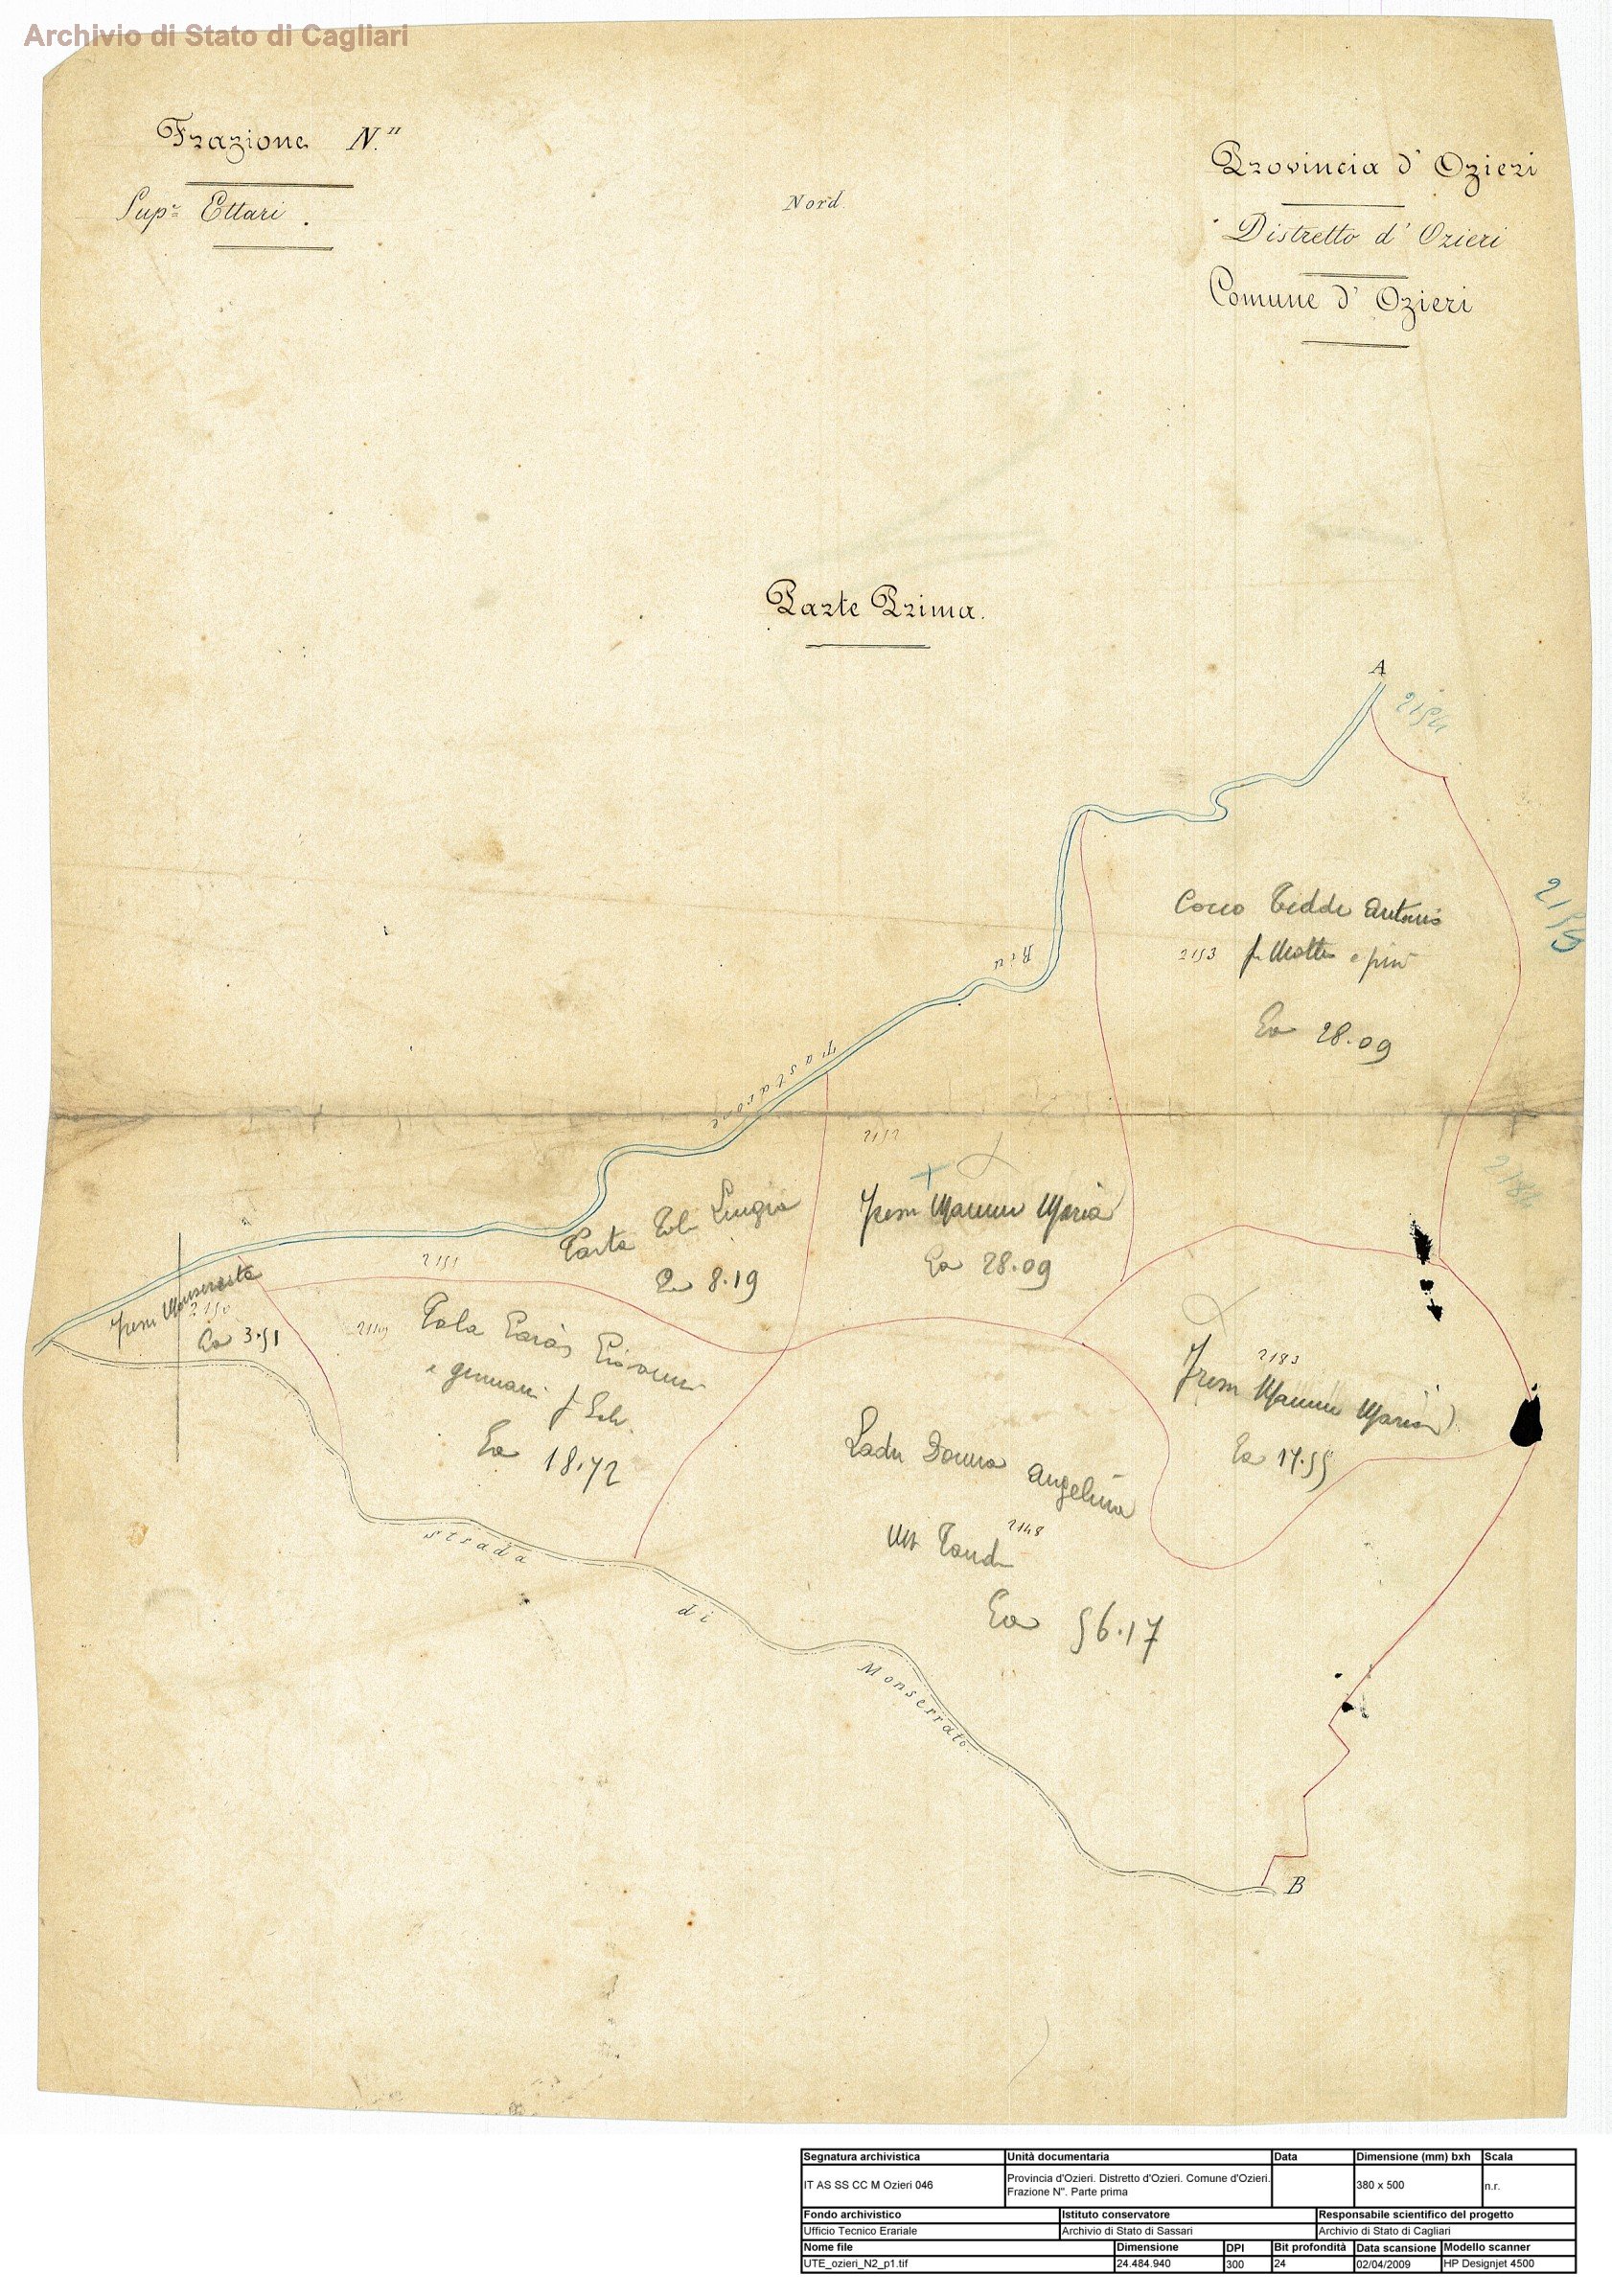 Archivio di Stato di Cagliari
Frazione N."
Sup.e Ettari .
Nord.
Provincia d' Ozieri
Distretto d' Ozieri
Comune d' Ozieri
Parte Prima.
A
2154
2155
Cocco Tedde Antonio
2153
Ea 28.09
Riu
Tastarone
2152
Maria
Ea 28.09
2184
Tola
8.19
2151
2150
Ea 3.51
2149
Tola
Ea 18.72
2183
Maria
Ea 17.55
Ladu Donna Angelina
2148
Ea 56.17
Strada
di
Monserrato.
B
Segnatura archivistica
Unità documentaria
Data
Dimensione (mm) bxh
Scala
IT AS SS CC M Ozieri 046
Provincia d'Ozieri. Distretto d'Ozieri. Comune d'Ozieri.
Frazione N". Parte prima
380 x 500
n.r.
Fondo archivistico
Istituto conservatore
Responsabile scientifico del progetto
Ufficio Tecnico Erariale
Archivio di Stato di Sassari
Archivio di Stato di Cagliari
Nome file
Dimensione
DPI
Bit profondità
Data scansione
Modello scanner
UTE_ozieri_N2_p1.tif
24.484.940
300
24
02/04/2009
HP Designjet 4500